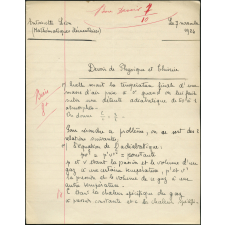 Bien mais 7
10
Antoinette Léon
(Mathématiques élémentaires)
Le 7 novembre
1924
Devoir de Physique et Chimie
Bien
Quelle serait la température finale d'une
masse d'air pris à 0° quand on lui fait
subir une détente adiabatique de
atmosphères.
On donne
Pour résoudre ce problème, on se sert des 2
relations suivantes.
1° l'équation de l'adiabatique:
= p'v' = constante
p et v étant la pression et le volume d'un
gaz à une certaine température, p' et v'
la pression et le volume de ce gaz à une
autre température.
étant la chaleur spécifique du gaz
à pression constante et c la chaleur spécifique